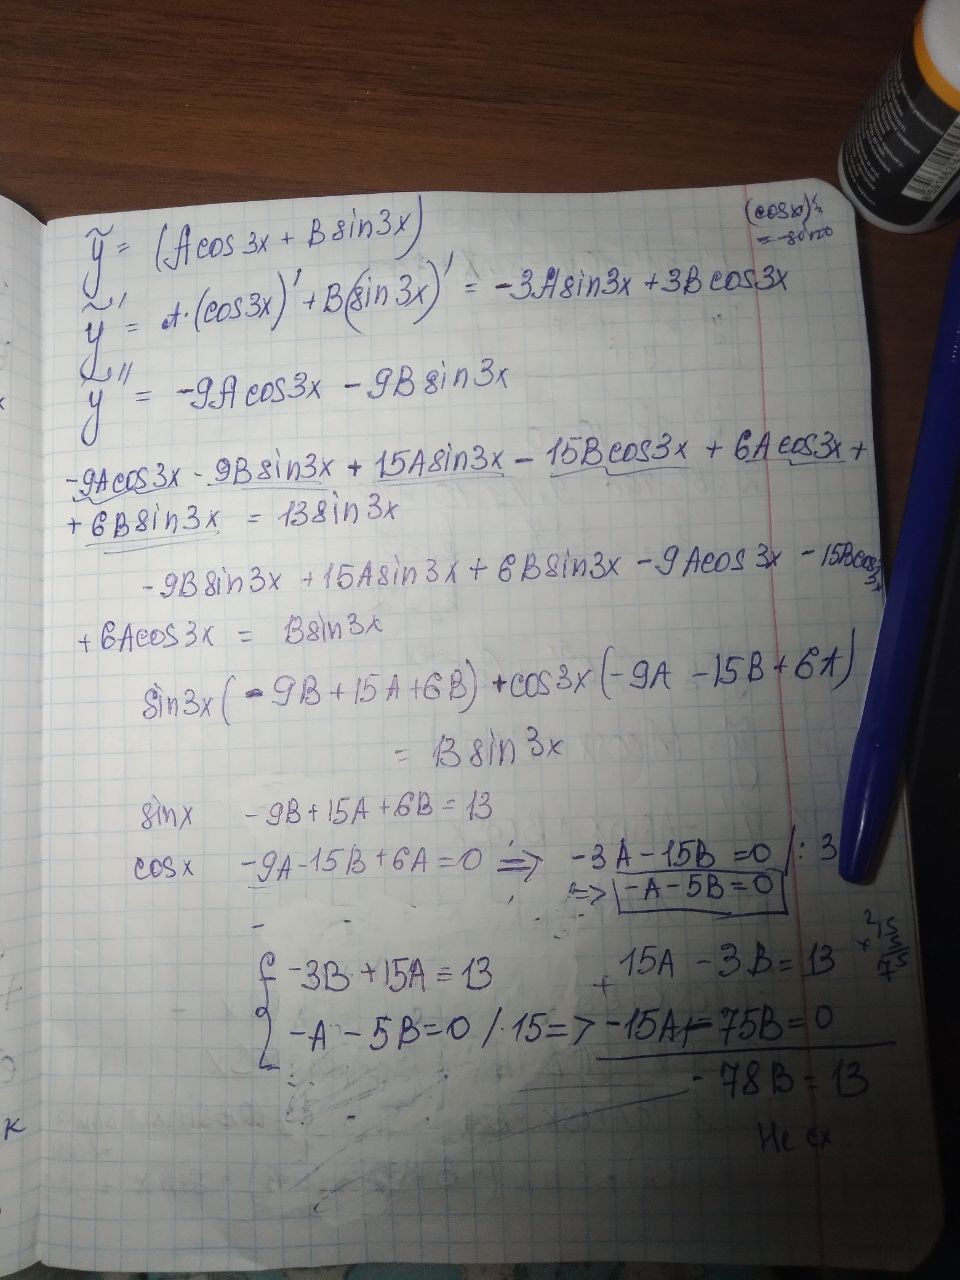 ỹ = (Acos3x + Bsin3x)
(cosx)'=
= -sinx
ỹ' = A·(cos3x)' + B(sin3x)' = -3Asin3x + 3Bcos3x
ỹ'' = -9Acos3x - 9Bsin3x
-9Acos3x - 9Bsin3x + 15Asin3x - 15Bcos3x + 6Acos3x +
+ 6Bsin3x = 13sin3x
-9Bsin3x + 15Asin3x + 6Bsin3x - 9Acos3x - 15Bcos3x
+ 6Acos3x = 13sin3x
sin3x(-9B + 15A + 6B) + cos3x(-9A - 15B + 6A)
= 13sin3x
sinx -9B + 15A + 6B = 13
cosx -9A - 15B + 6A = 0 => -3A - 15B = 0 /:3
=> -A - 5B = 0
{ -3B + 15A = 13
-A - 5B = 0 /·15 =>
+ 15A - 3B = 13
-15A - 75B = 0
-78B = 13
15
5
75
Не сх
к